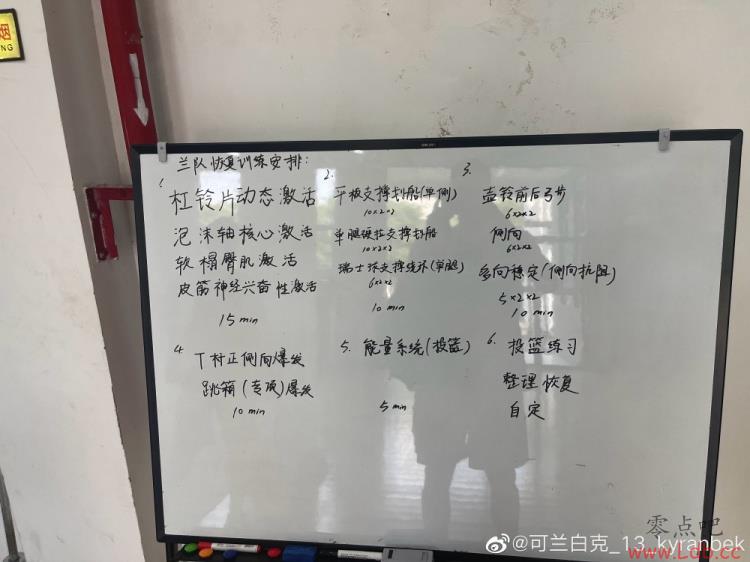 烟
NG
兰队恢复训练安排:
1.
杠铃片动态激活
泡沫轴核心激活
软榻臀肌激活
皮筋神经兴奋性激活
15 min
2.
平板支撑划船(单侧)
10×2×2
单腿硬拉支撑划船
10×2×2
瑞士球支撑绕环(单腿)
6×2×2
10 min
3.
壶铃前后弓步
6×2×2
侧向
6×2×2
多向稳定(侧向抗阻)
5×2×2
10 min
4.
丅村正侧向爆发
跳箱(专项)爆发
10 min
5. 能量系统(投篮)
5 min
6. 投篮练习
整理恢复
自定
@可兰白克_13_kyranbek
零点吧
www.Ldb.cc